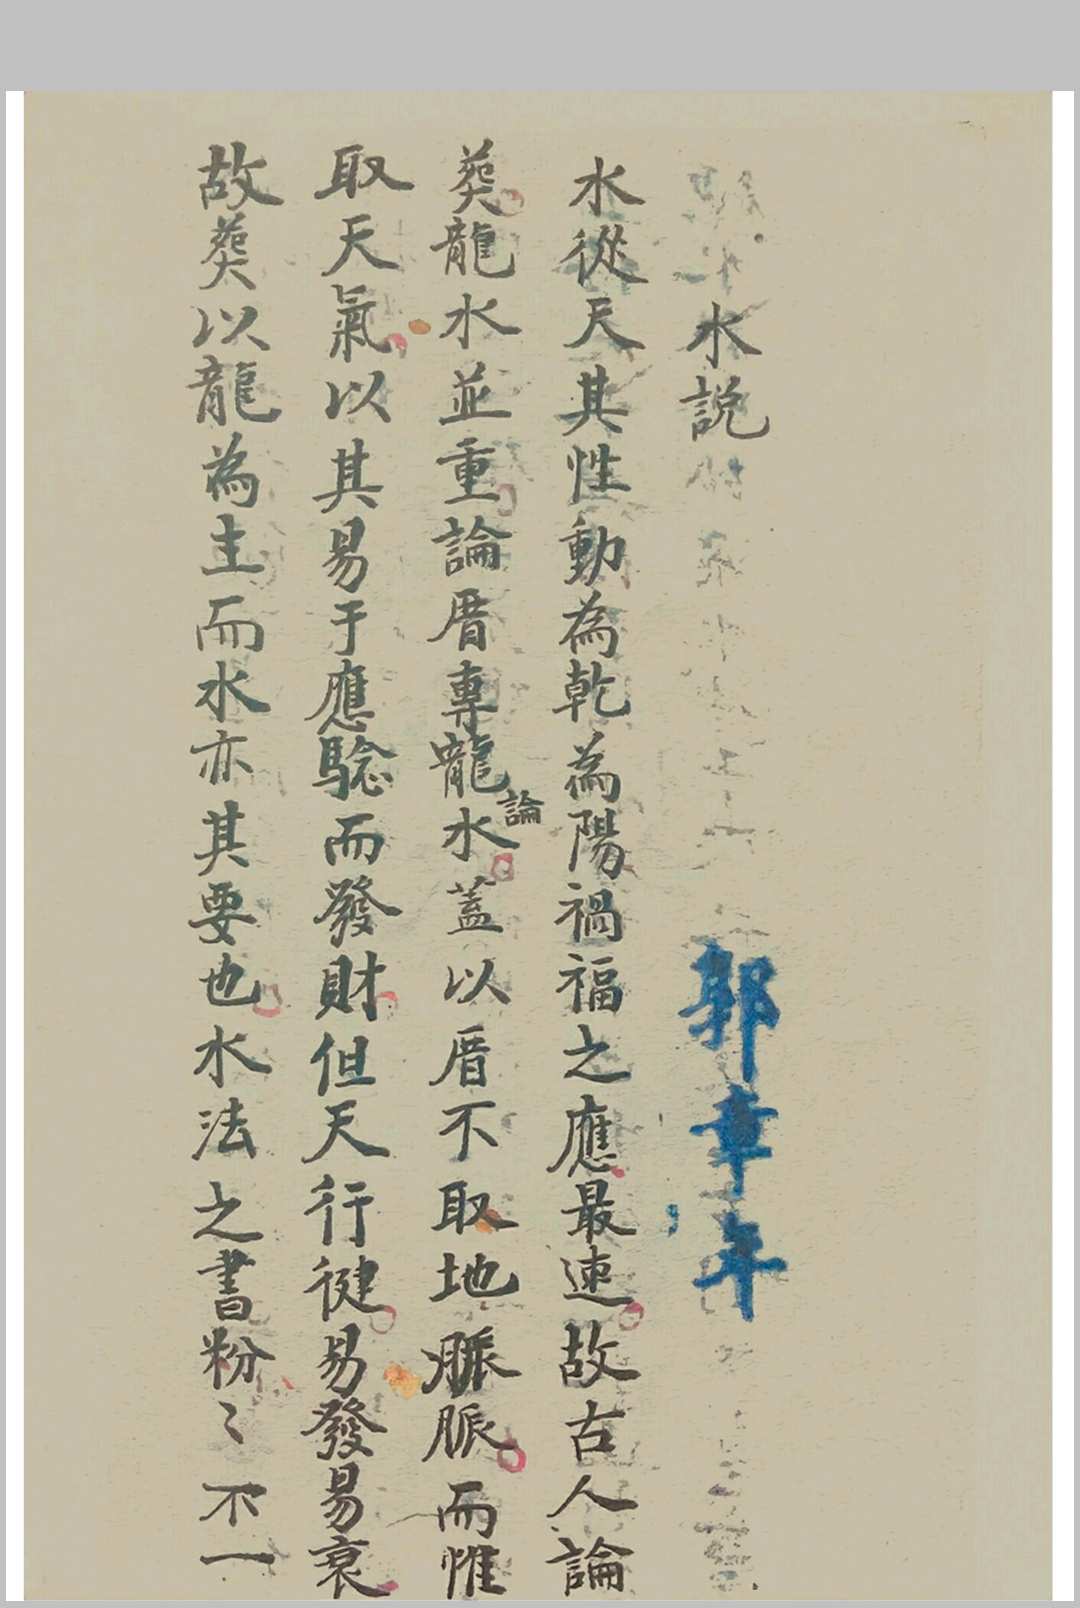 水說 郭章年
水從天其性動為乾為陽禍福之應最速故古人論
葬龍水並重論厝專龍論水蓋以厝不取地脈脈而惟
取天氣以其易于應騐而發財但天行徤易發易衰
故葬以龍為主而水亦其要也水法之書粉〻不一